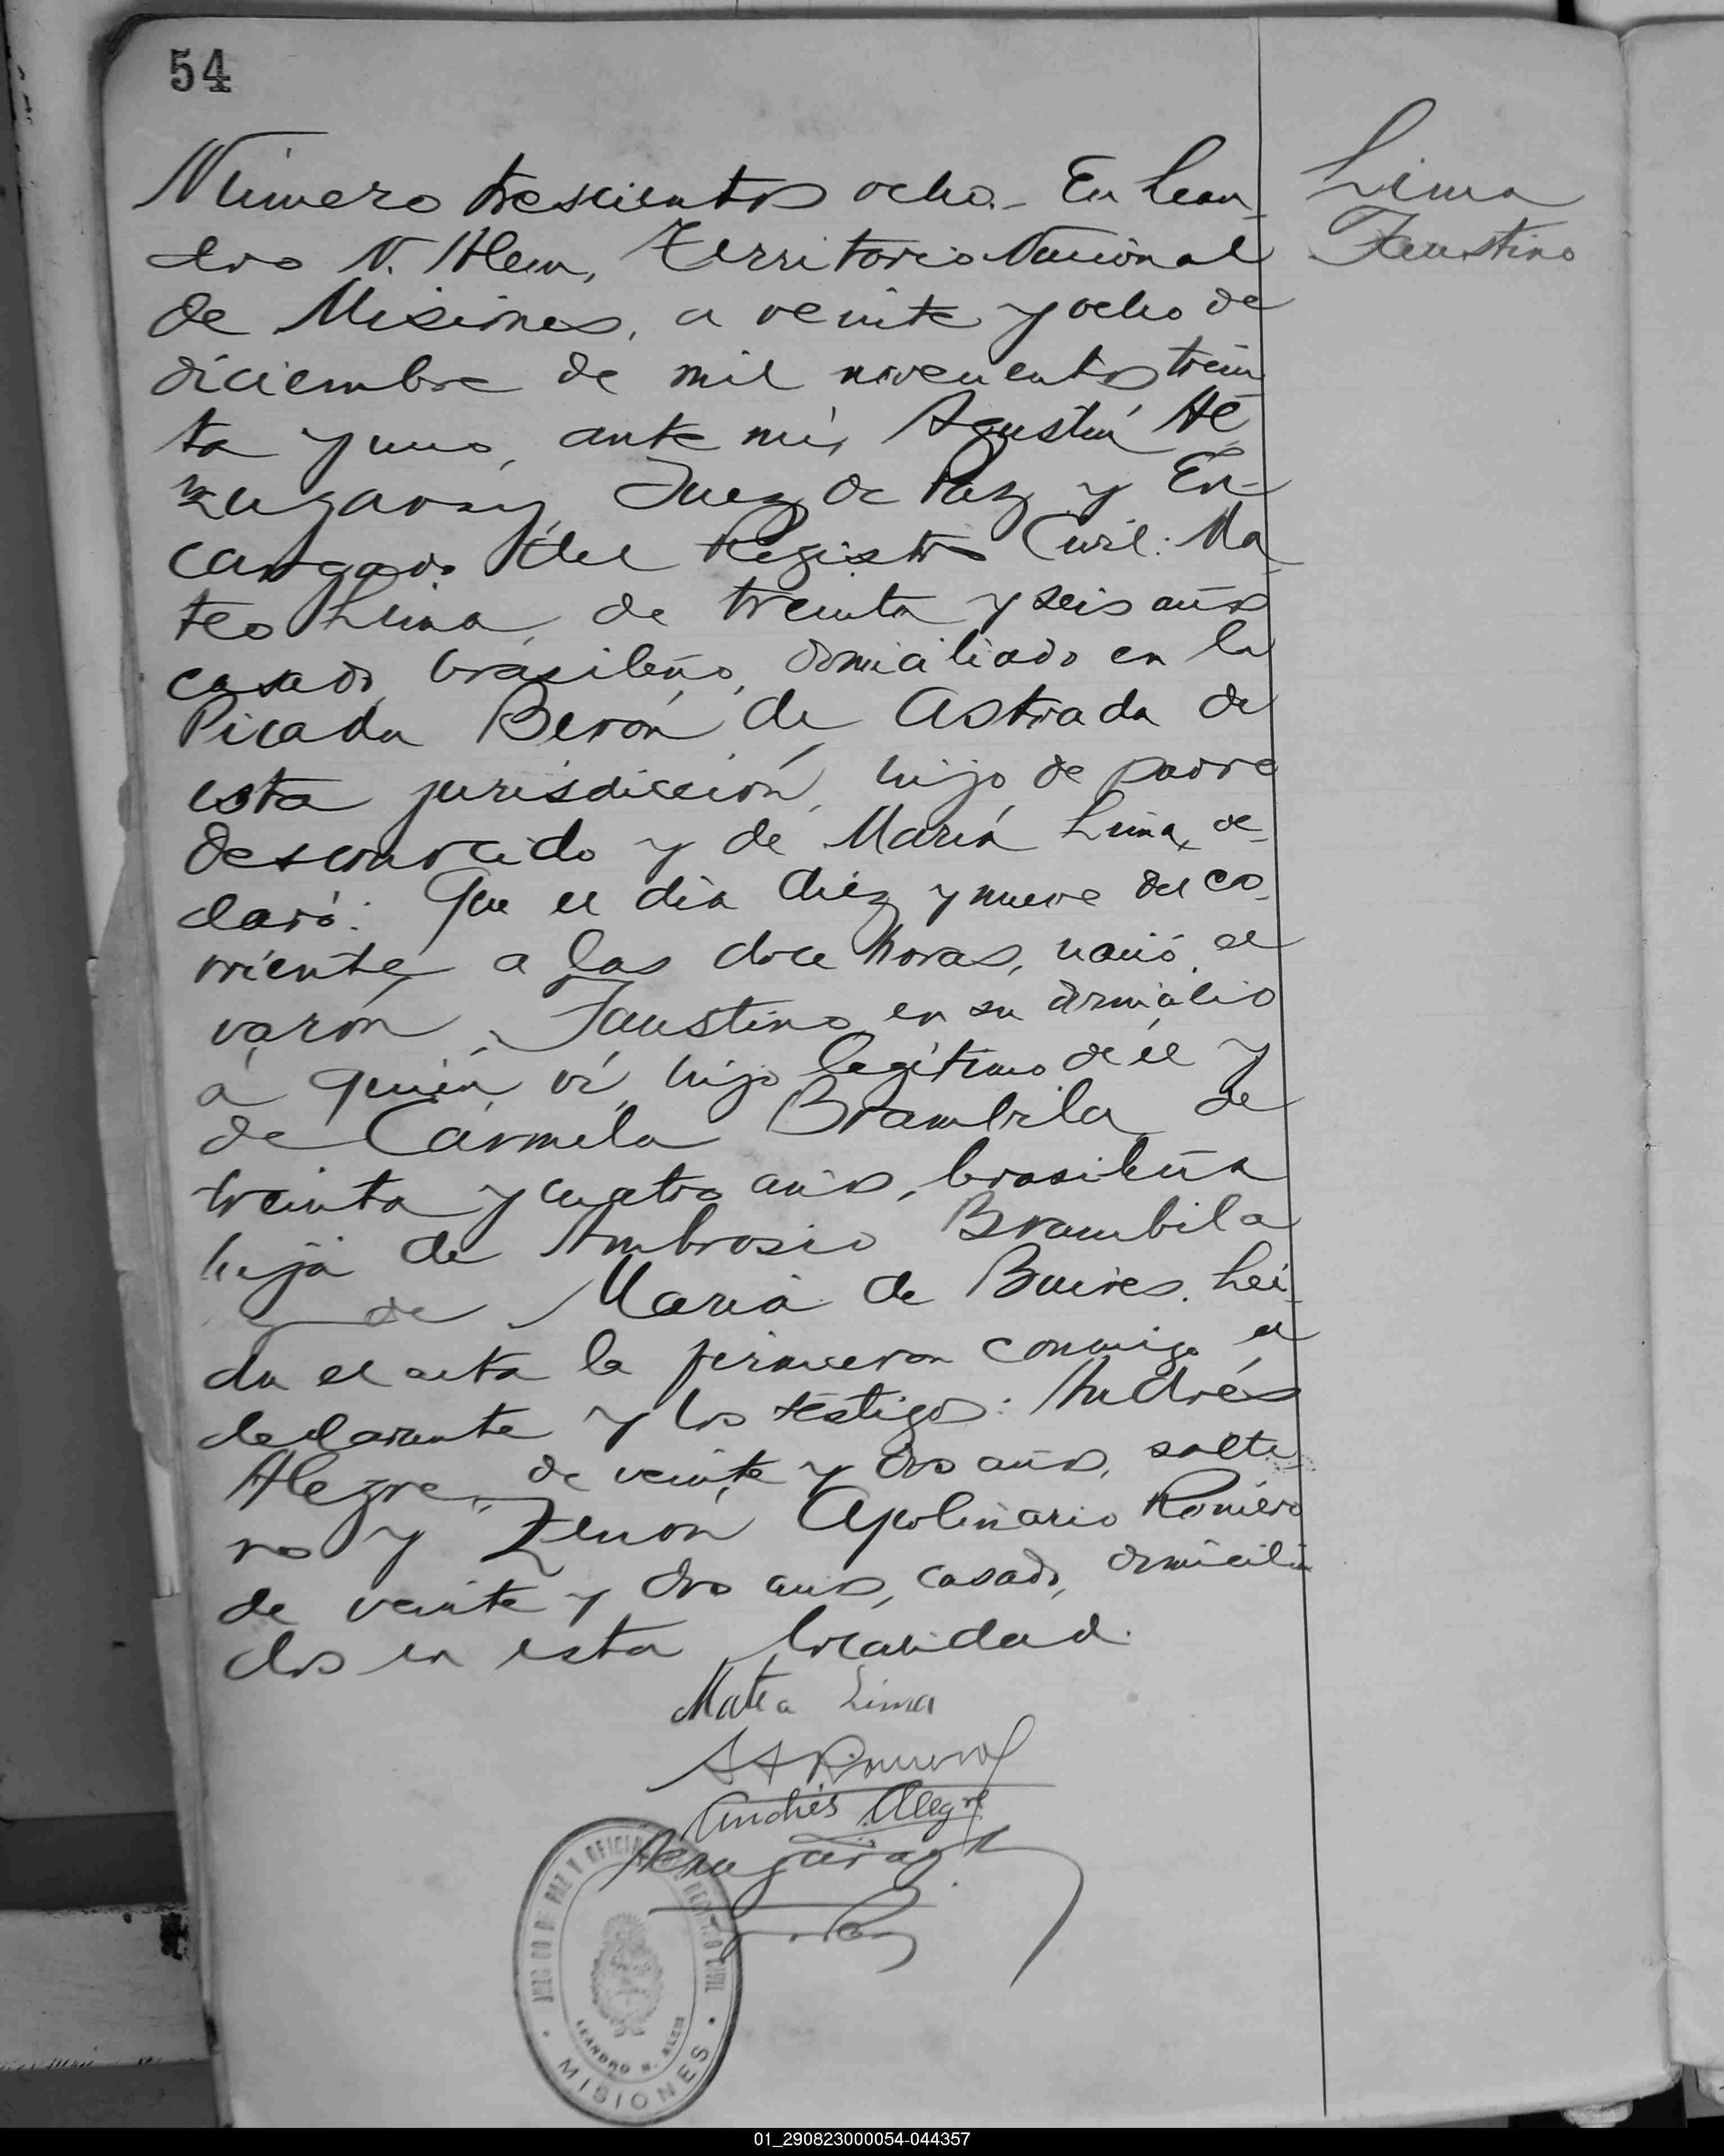 54
Número trescientos ocho.- En Lean-
dro N. Alem, Territorio Nacional
de Misiones, a veinte y ocho de
diciembre de mil novecientos trein
ta y uno, ante mí, Agustín
Juez de Paz y En-
cargado del Registro Civil: Ma-
teo Lima, de treinta y seis años
casado, brasileño, domiciliado en la
Picada Berón de Astrada de
esta jurisdicción, hijo de padre
desconocido y de María Lima, de-
claró: Que el día diez y nueve del co-
rriente, a las doce horas, nació el
varón, Faustino en su domicilio
á quién ví, hijo legítimo de él y
de Carmela Brambila de
treinta y cuatro años, brasileña
hija de Ambrosio Brambila
y de María de Buires. Lei-
da el acta la firmaron conmigo el
declarante y los testigos: Andrés
Alegre, de veinte y dos años, solte-
ro y Zenón Apolinario Romero
de veinte y dos años, casado, domicilia
dos en esta localidad.
Lima
Faustino
Mateo Lima
Romero
Andrés Alegre
JUZGADO DE PAZ Y OFICINA DE REGISTRO CIVIL
LEANDRO N. ALEM
MISIONES
01_290823000054-044357